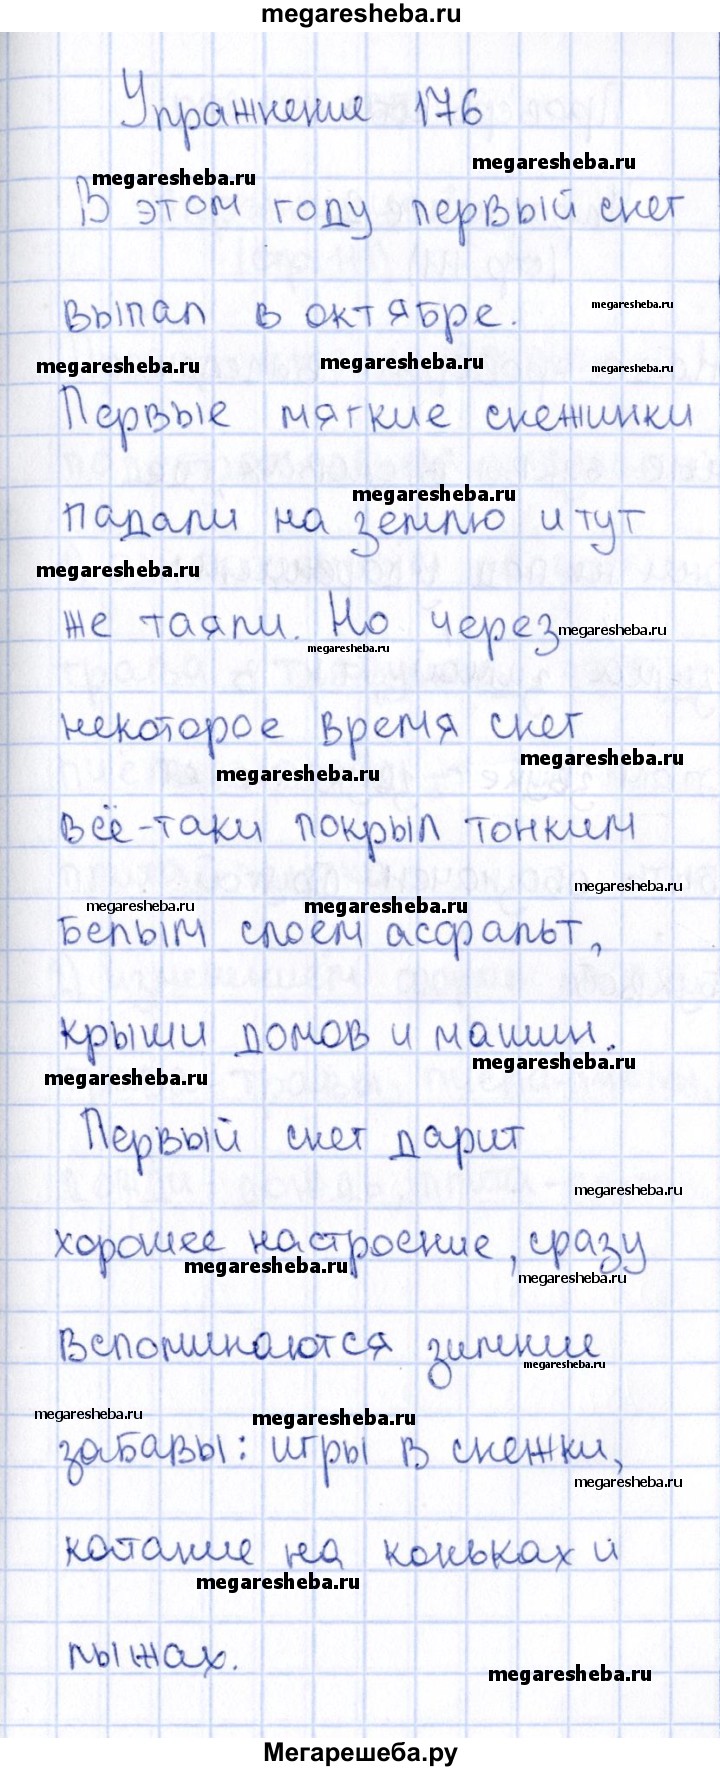 megaresheba.ru
Упражнение 176
megaresheba.ru
megaresheba.ru
В этом году первый снег
выпал в октябре.
megaresheba.ru
megaresheba.ru
megaresheba.ru
megaresheba.ru
Первые мягкие снежинки
megaresheba.ru
падали на землю и тут
megaresheba.ru
же таяли. Но через
megaresheba.ru
megaresheba.ru
некоторое время снег
megaresheba.ru
megaresheba.ru
всё-таки покрыл тонким
megaresheba.ru
megaresheba.ru
megaresheba.ru
белым слоем асфальт,
крыши домов и машин.
megaresheba.ru
megaresheba.ru
Первый снег дарит
megaresheba.ru
хорошее настроение, сразу
megaresheba.ru
megaresheba.ru
вспоминаются зимние
megaresheba.ru
megaresheba.ru
megaresheba.ru
забавы: игры в снежки,
megaresheba.ru
катание на коньках и
megaresheba.ru
лыжах.
megaresheba.ru
Мегарешеба.ру